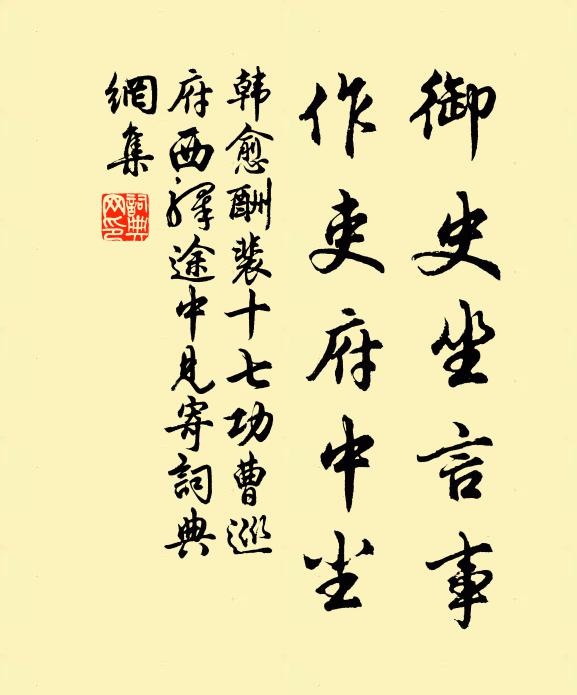 御史坐言事
作吏府中尘
韩愈酬裴十七功曹巡
府西驿途中见寄詞典
網集
詞典
网印